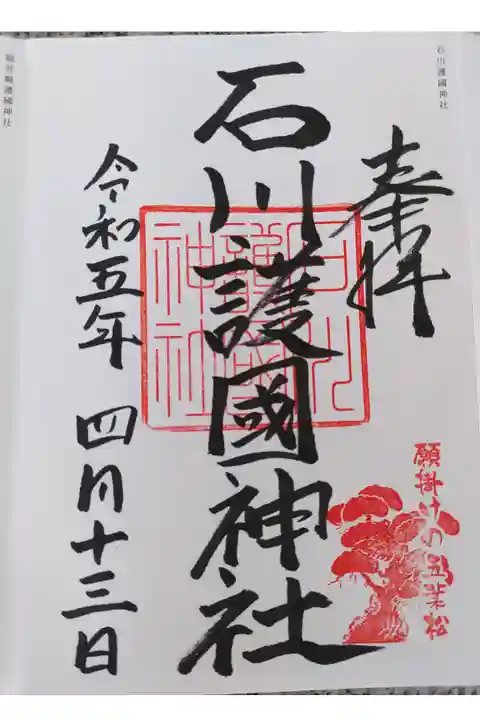 石川護國神社
奉拝
石川護國神社
石川護國神社
願掛けの五葉松
令和五年 四月十三日